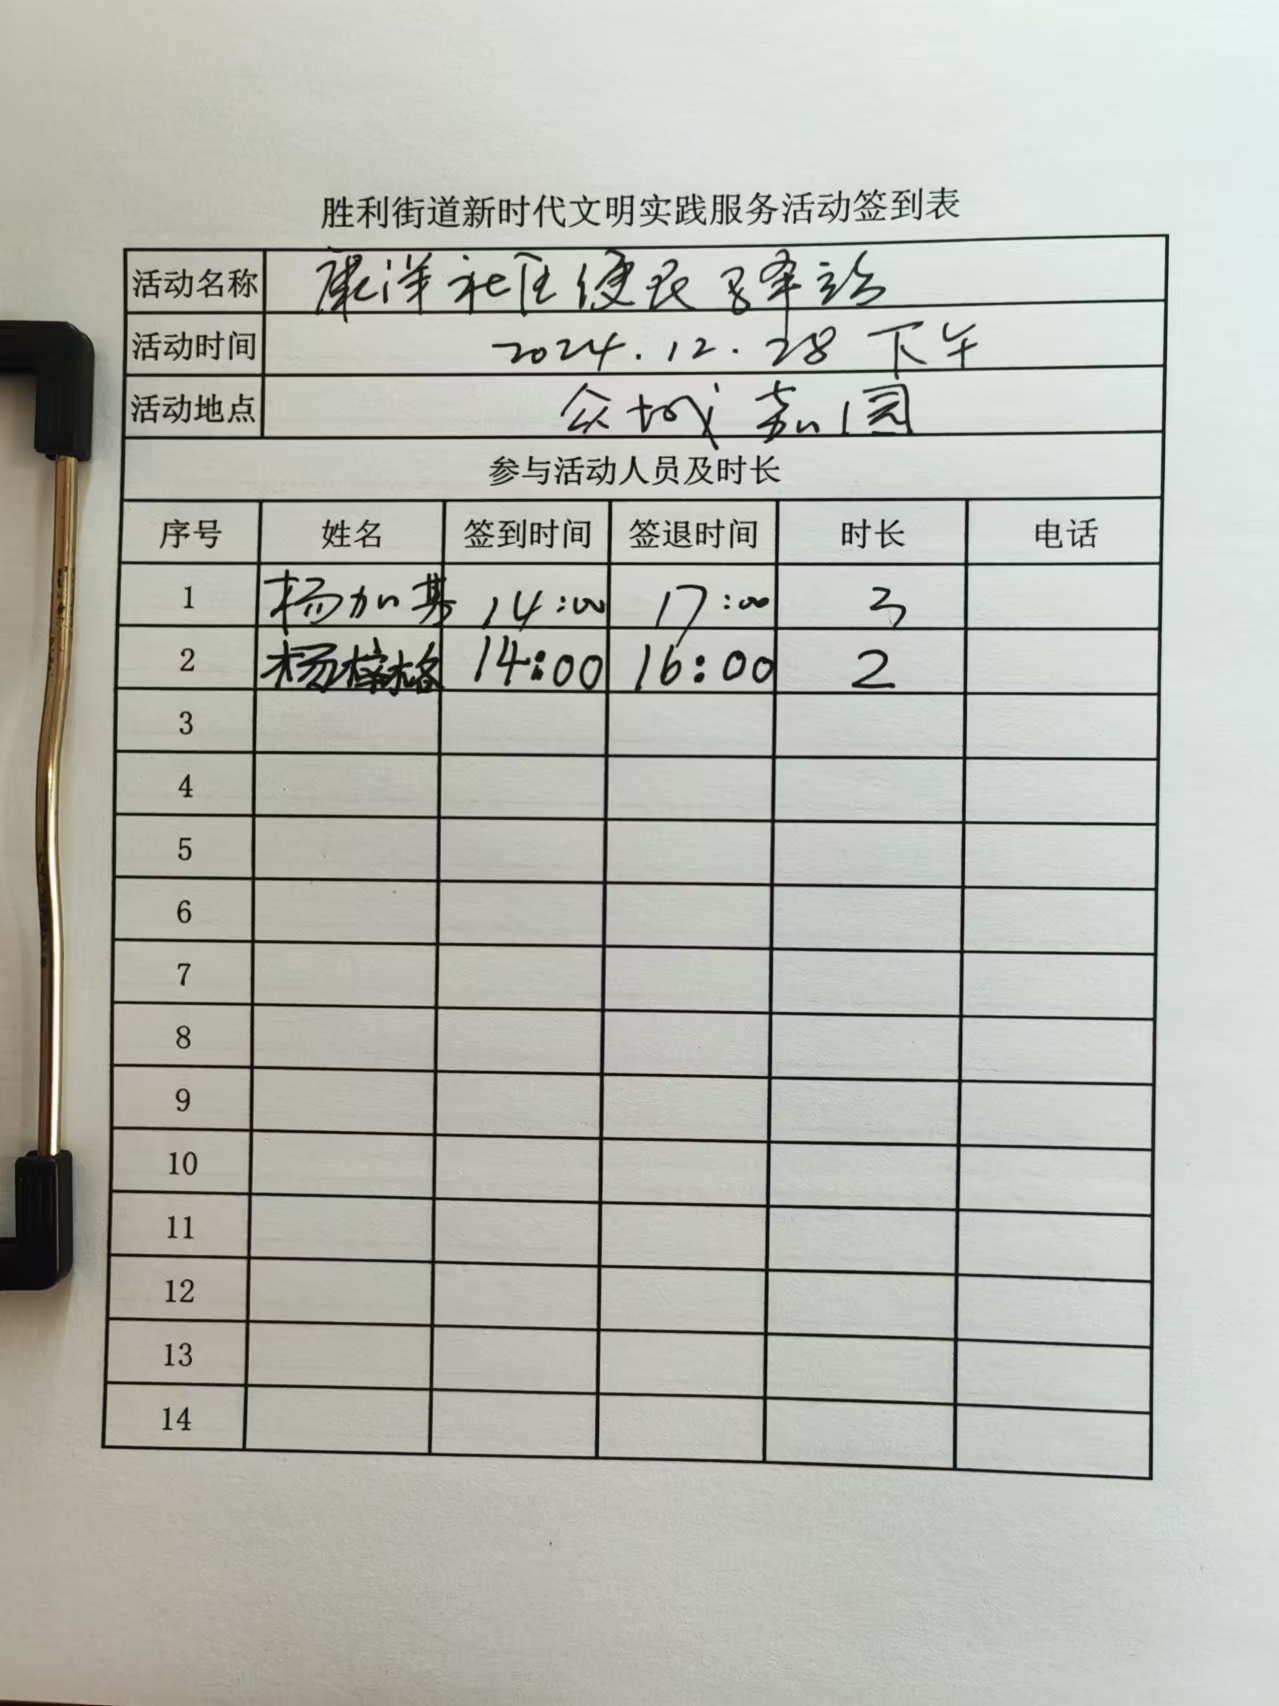 胜利街道新时代文明实践服务活动签到表
活动名称 康洋社区便民驿站
活动时间 2024.12.28 下午
活动地点 众城嘉园
参与活动人员及时长
序号 姓名 签到时间 签退时间 时长 电话
1 杨加其 14:00 17:00 3
2 杨梓格 14:00 16:00 2
3
4
5
6
7
8
9
10
11
12
13
14